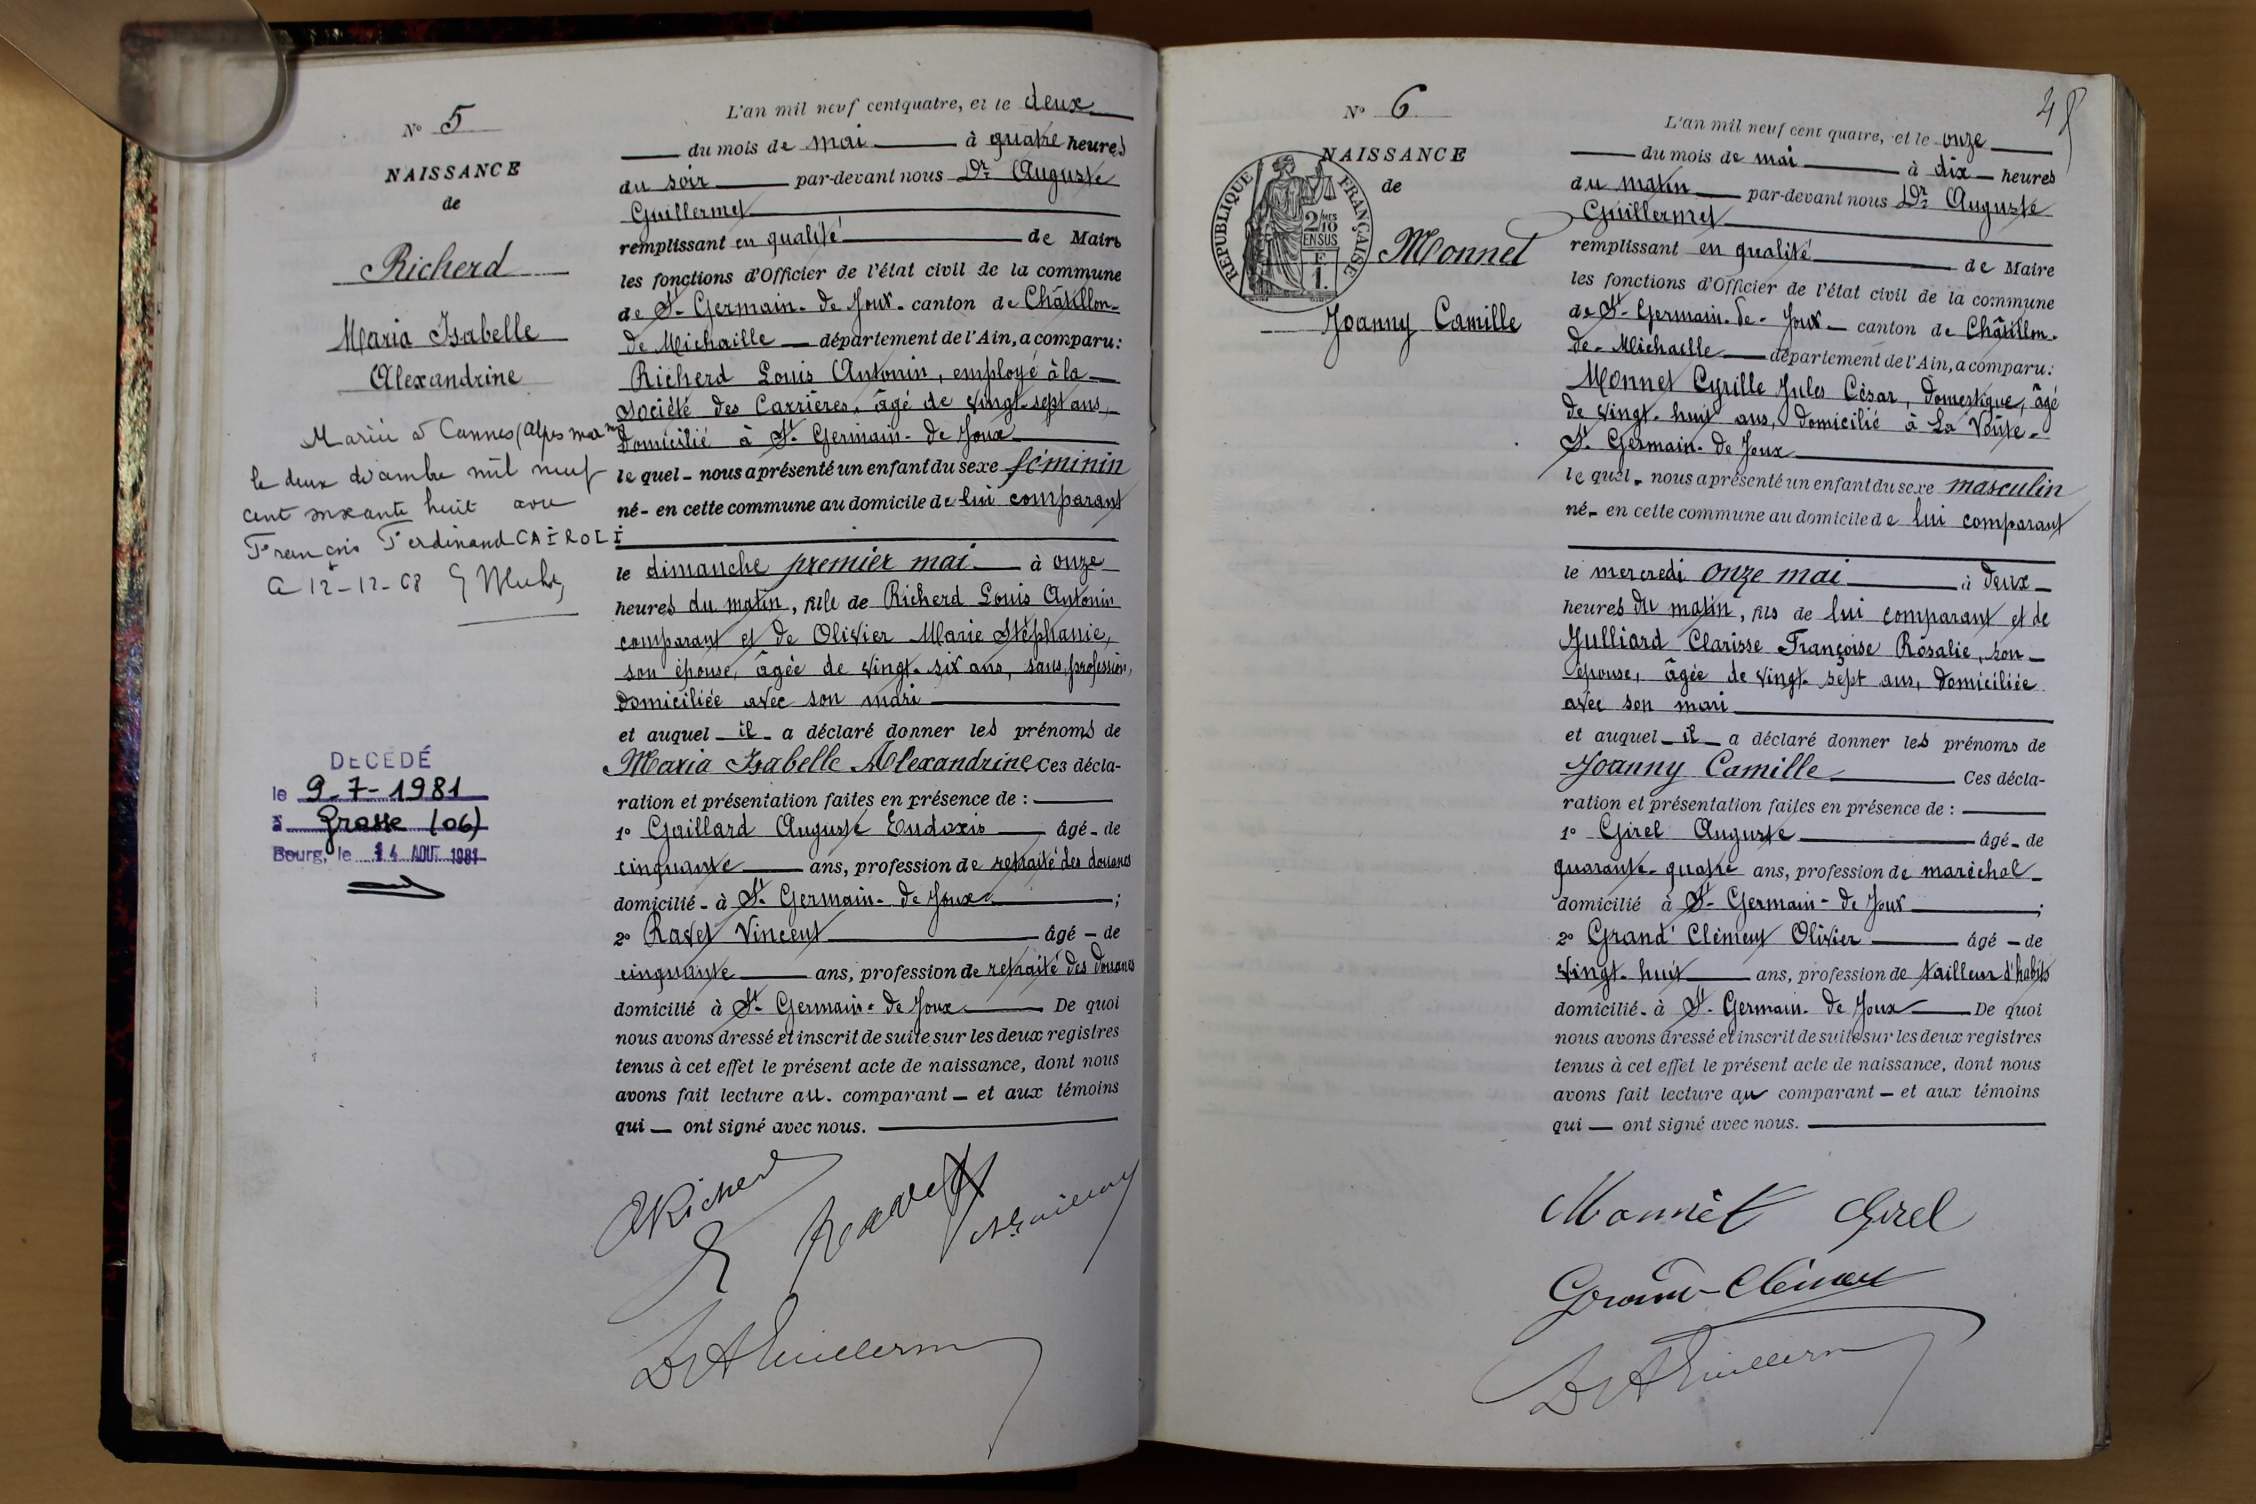 N° 5
NAISSANCE
de
Richerd
Maria Isabelle
Alexandrine
Mariée à Cannes (Alpes mar mes
le deux décembre mil neuf
cent soixante huit avec
François Ferdinand CAÏROLI
12-12-68
DÉCÉDÉ
le 9-7-1981
à Grasse (06)
Bourg, le 14 AOUT 1981
L'an mil neuf cent quatre, et le deux
du mois de mai à quatre heures
du soir par-devant nous Dr Auguste
Guillermet
remplissant en qualité de Maire
les fonctions d'Officier de l'état civil de la commune
de St Germain-de Joux - canton de Châtillon-
de Michaille département de l'Ain, a comparu:
Richerd Louis Antonin, employé à la
société des Carrières, âgé de vingt-sept ans,
domicilié à St Germain-de Joux
le quel - nous a présenté un enfant du sexe féminin
né - en cette commune au domicile de lui comparant
le dimanche premier mai à onze
heures du matin, fille de Richerd Louis Antonin
comparant et de Olivier Marie Stéphanie,
son épouse, âgée de vingt-six ans, sans profession,
domiciliée avec son mari
et auquel il a déclaré donner les prénoms de
Maria Isabelle Alexandrine Ces décla-
ration et présentation faites en présence de :
1° Gaillard Auguste Eudoxis âgé - de
cinquante ans, profession de retraité des douanes
domicilié - à St Germain-de Joux ;
2° Ravet Vincent âgé - de
cinquante ans, profession de retraité des douanes
domicilié à St Germain-de Joux De quoi
nous avons dressé et inscrit de suite sur les deux registres
tenus à cet effet le présent acte de naissance, dont nous
avons fait lecture au. comparant - et aux témoins
qui - ont signé avec nous.
Richerd Ravet
48
N° 6
NAISSANCE
de
RÉPUBLIQUE FRANÇAISE
2/10 MES
EN SUS
F
1.
Monnet
Joanny Camille
L'an mil neuf cent quatre, et le onze
du mois de mai à dix heures
du matin par-devant nous Dr Auguste
Guillermet
remplissant en qualité de Maire
les fonctions d'Officier de l'état civil de la commune
de St Germain-de-Joux - canton de Châtillon-
de-Michaille département de l'Ain, a comparu:
Monnet Cyrille Jules César, domestique, âgé
de vingt-huit ans, domicilié à La Voûte-
St Germain-de Joux
le quel - nous a présenté un enfant du sexe masculin
né - en cette commune au domicile de lui comparant
le mercredi onze mai à deux
heures du matin, fils de lui comparant et de
Julliard Clarisse Françoise Rosalie, son
épouse, âgée de vingt-sept ans, domiciliée
avec son mari
et auquel il a déclaré donner les prénoms de
Joanny Camille Ces décla-
ration et présentation faites en présence de :
1° Girel Auguste âgé - de
quarante-quatre ans, profession de maréchal
domicilié à St Germain-de Joux ;
2° Grand' Clément Olivier âgé - de
vingt-huit ans, profession de tailleur d'habits
domicilié - à St Germain-de Joux De quoi
nous avons dressé et inscrit de suite sur les deux registres
tenus à cet effet le présent acte de naissance, dont nous
avons fait lecture au comparant - et aux témoins
qui - ont signé avec nous.
Monnet Girel
Grand-Clément